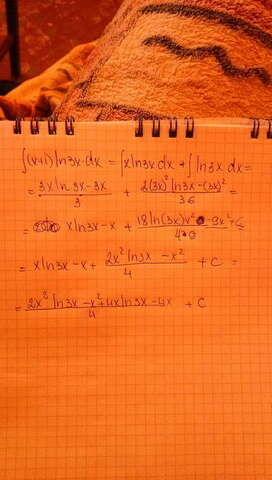 ∫(x+1)ln3x·dx = ∫xln3x dx + ∫ln3x dx =
= (3x ln 3x - 3x)/3 + (2(3x)² ln3x - (3x)²)/36 =
= x ln3x - x + (18ln(3x)x² - 9x²)/(4·9) + C
= x ln3x - x + (2x² ln3x - x²)/4 + C =
= (2x² ln3x - x² + 4x ln3x - 4x)/4 + C